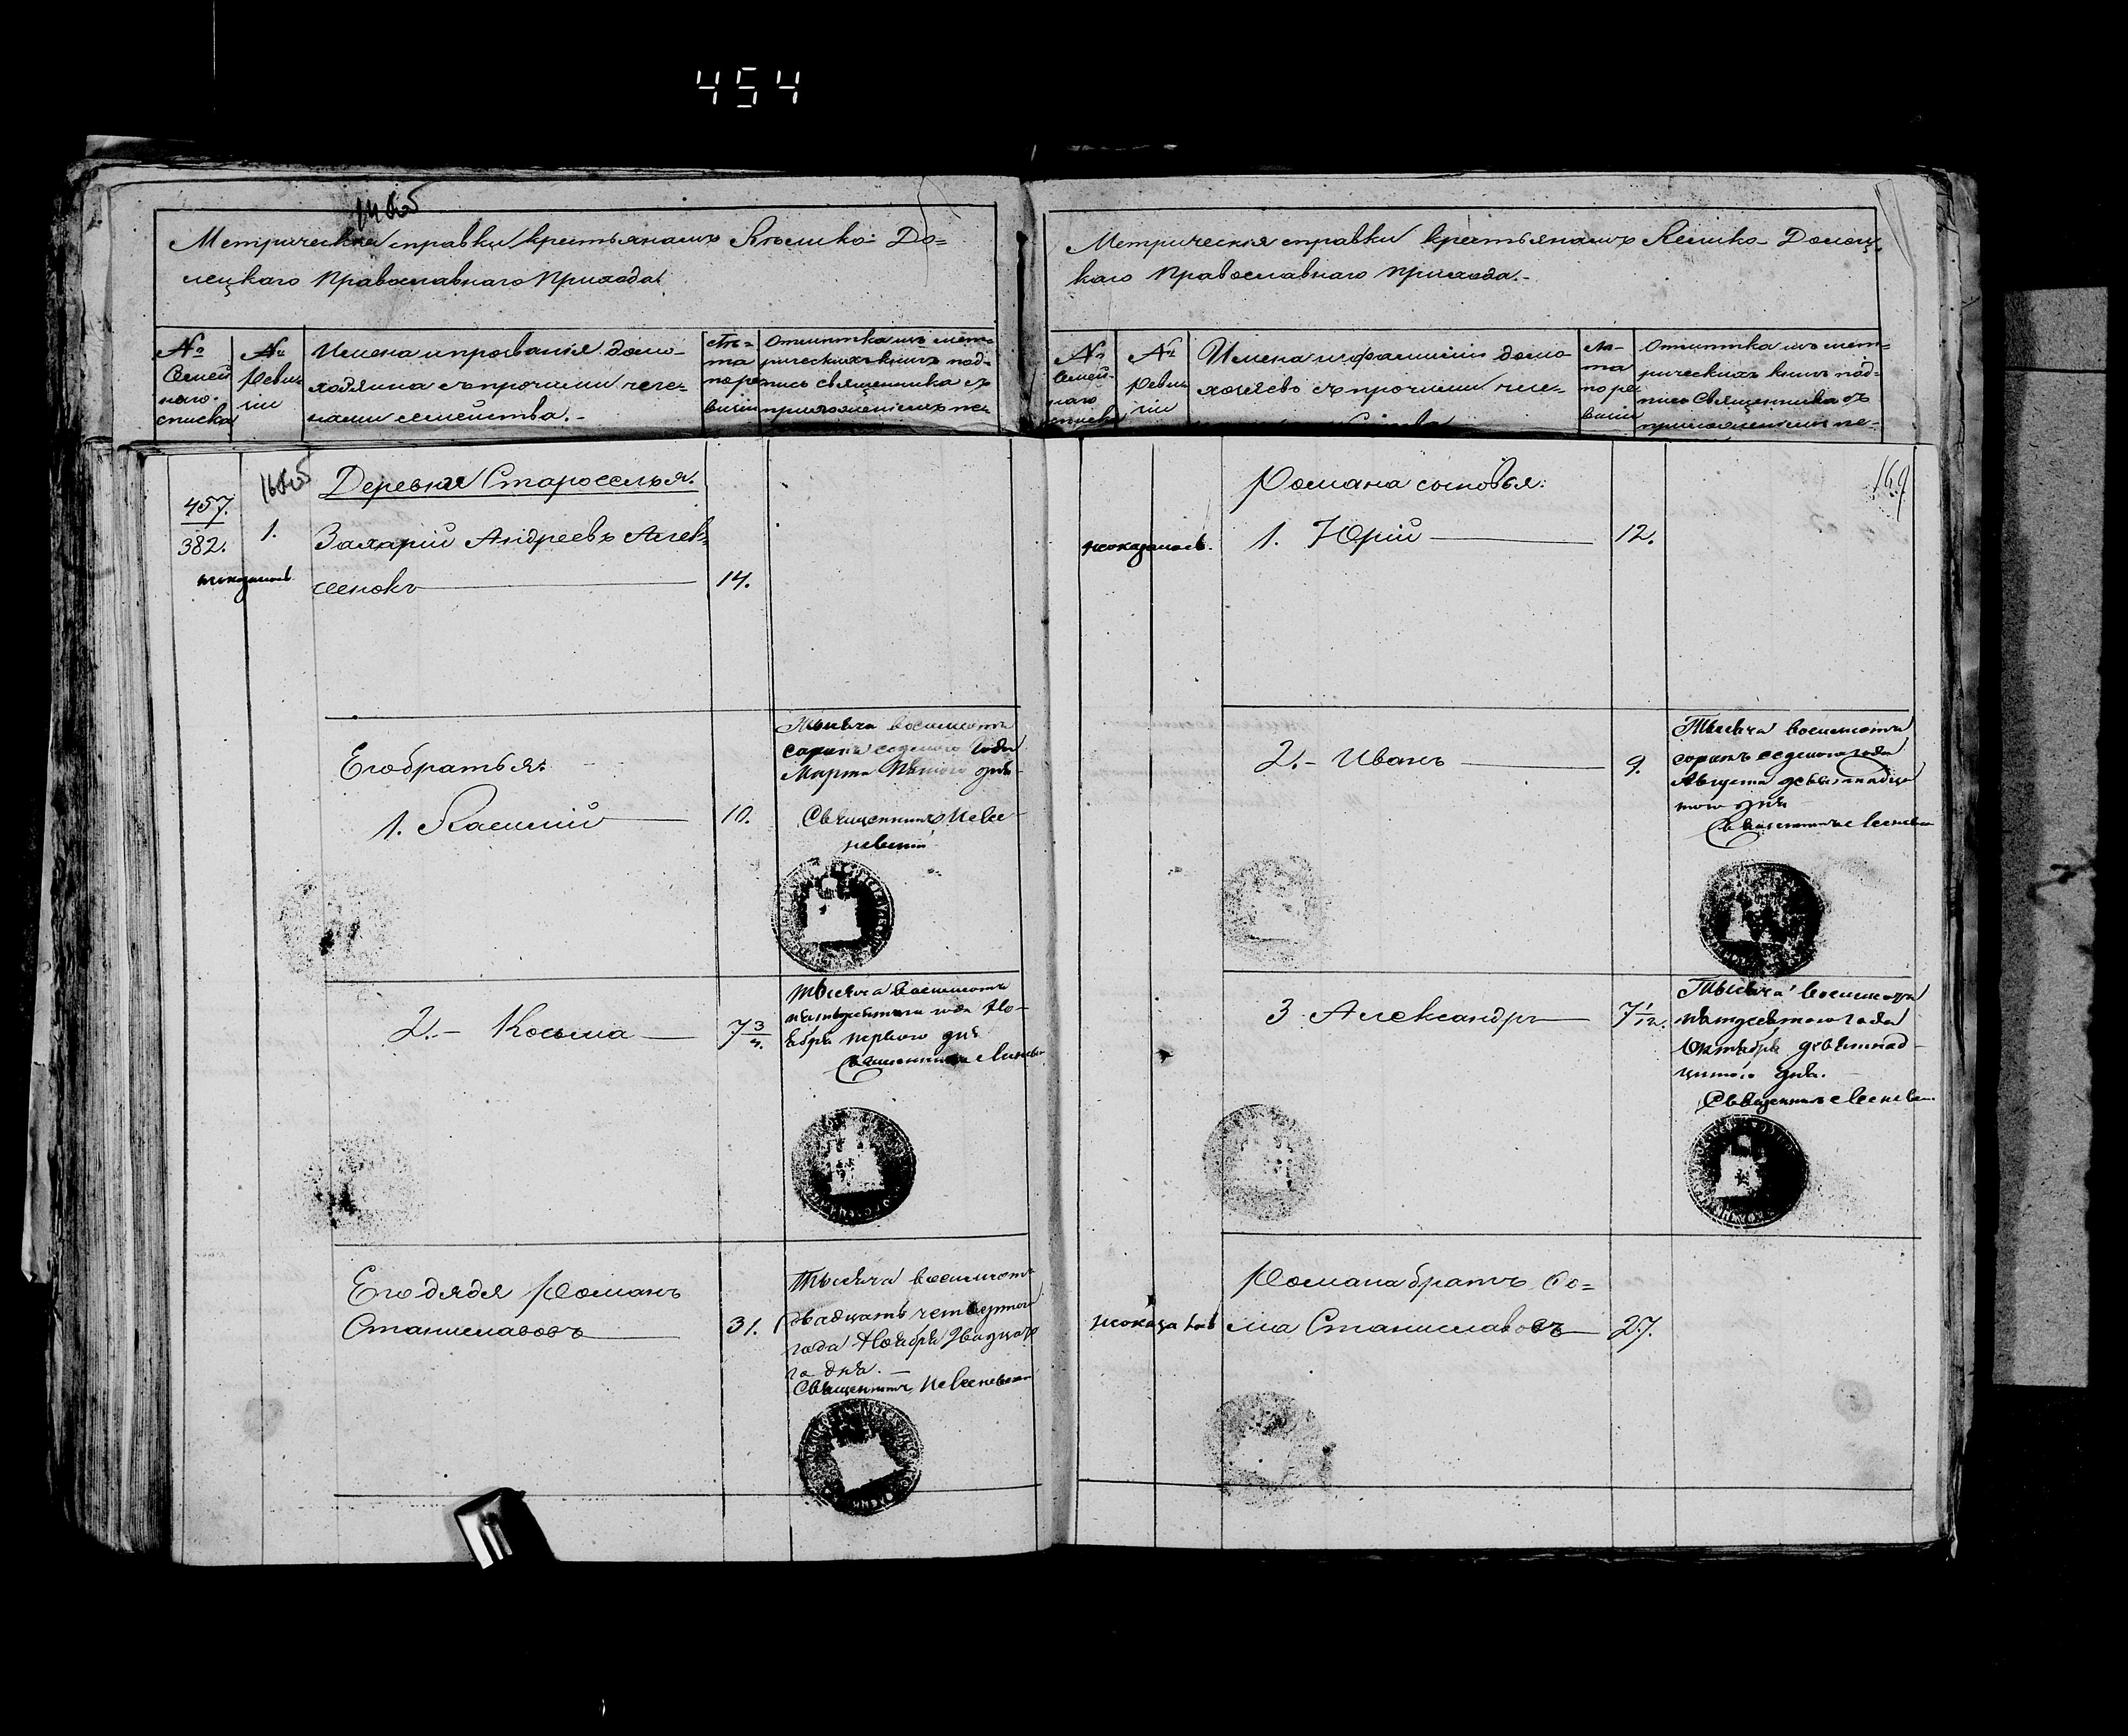 454
168об
Метрическія справки крестьянамъ Велико- До=
лецкаго Православнаго Прихода.
№
Семей
наго
списка
№
Реви-
зіи
Имена и прозванія домо-
хозяина съ прочими чле-
нами семейства.-
Лѣ-
та
по ре
визіи
Отмѣтка изъ мет-
рическихъ книгъ под-
пись священника съ
приложеніемъ пе-
168об
457.
382.
1.
Деревня Староселья.
Захарій Андреевъ Алек-
сенокъ
14.
неоказалось
Его братья:
1. Василий
10.
Тысяча восемьсотъ
сорокъ седьмого года
Марта Пятого дня
Священникъ
2.- Козьма
7 3/4.
Тысяча восемьсотъ
пятидесятого года Но-
ября первого дня
Священникъ
Его дядя Романъ
Станиславовъ
31.
Тысяча восемьсотъ
двадцать четвертого
года Ноября двадцато
го дня.-
Священникъ
Метрическія справки крестьянамъ Велико- Долец-
каго Православнаго прихода.-
№
Семей-
наго
списка
№
Реви-
зіи
Имена и фамиліи домо
хозяевъ съ прочими чле-
Лѣ-
та
по ре
визіи
Отмѣтка изъ мет-
рическихъ книгъ под-
пись Священника съ
приложеніемъ пе-
169
Романа сыновья:
неоказалось.
1. Юрій
12.
2.- Иванъ
9.
Тысяча восемьсотъ
сорокъ седьмого года
Августа девятнадца
того дня
Священникъ
3 Александръ
7 1/12.
Тысяча восемьсотъ
пятидесятого года
Октября девятнад-
цатого дня.-
Священникъ
Романа братъ Фо=
неоказалось
ма Станиславовъ
27.